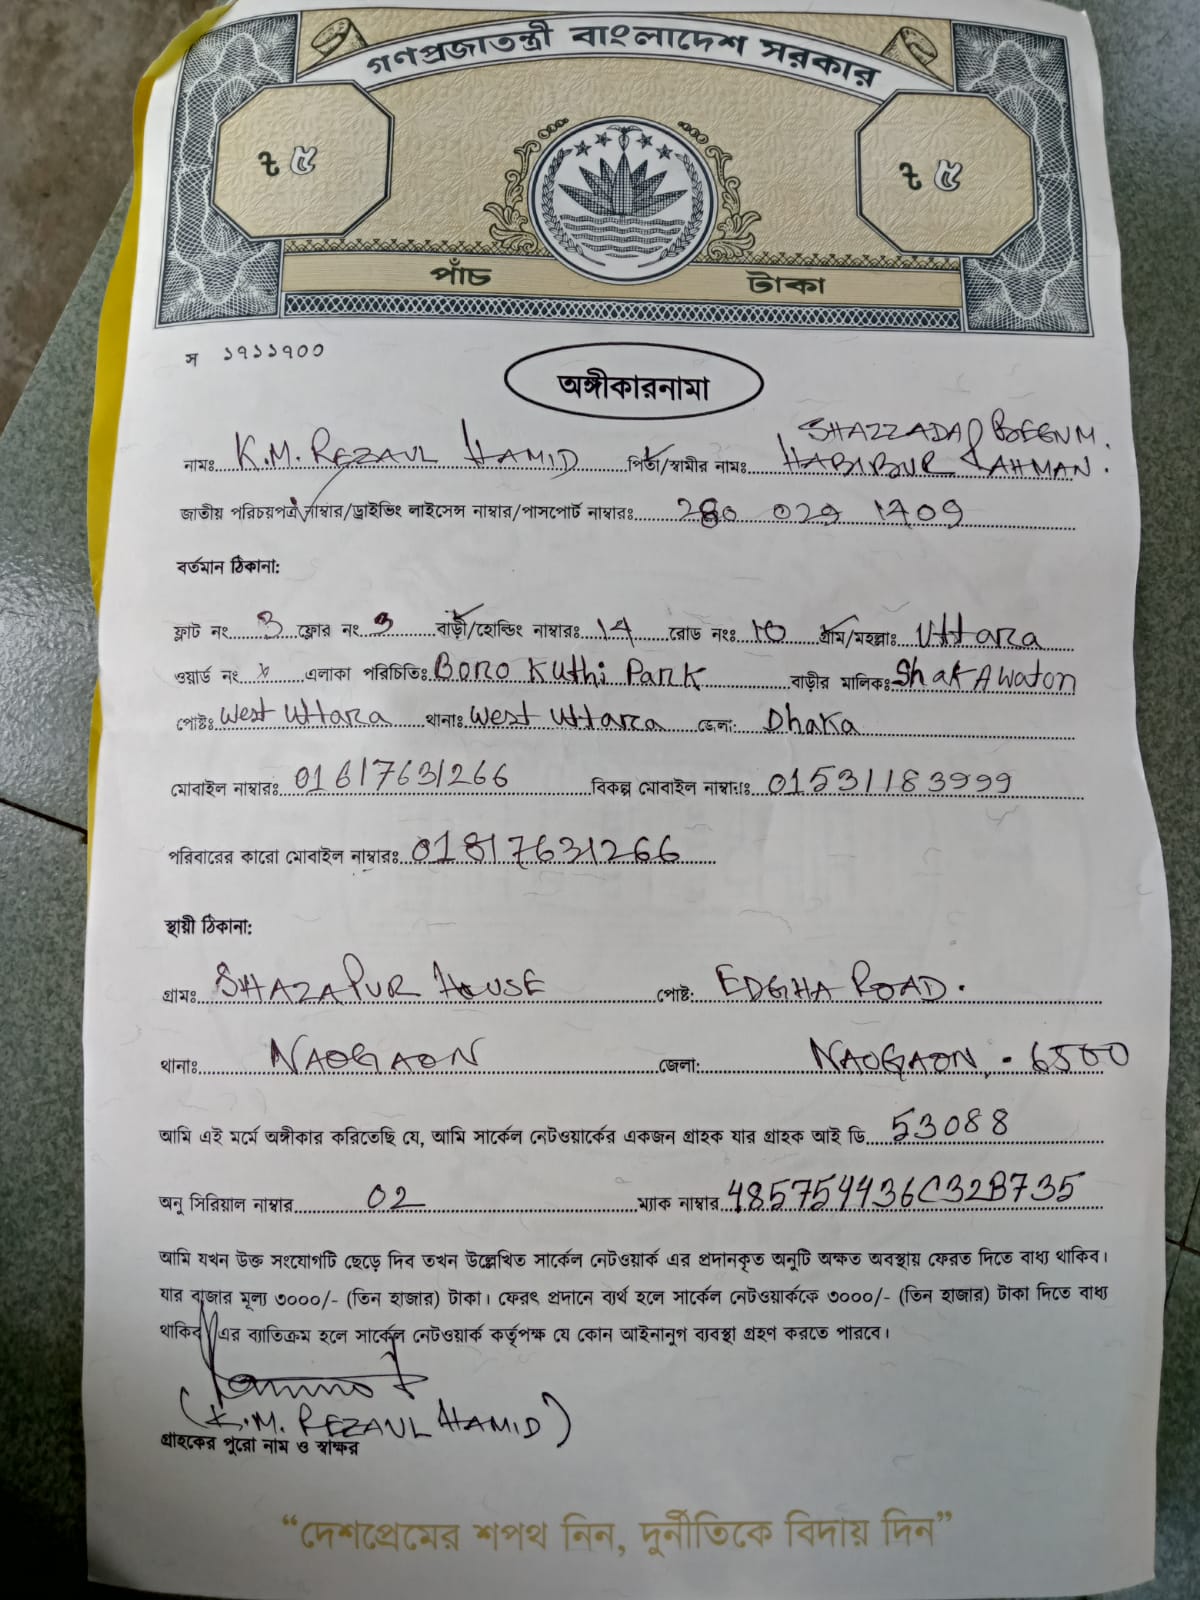 গণপ্রজাতন্ত্রী বাংলাদেশ সরকার
৳ ৫ ৳ ৫
পাঁচ টাকা
স ১৭১১৭০০
অঙ্গীকারনামা
SHAZZADA BEGUM.
নামঃ K.M. REZAUL HAMID পিতা/স্বামীর নামঃ HABIBUR RAHMAN.
জাতীয় পরিচয়পত্র নাম্বার/ড্রাইভিং লাইসেন্স নাম্বার/পাসপোর্ট নাম্বারঃ 280 029 1709
বর্তমান ঠিকানা:
ফ্লাট নং 3 ফ্লোর নং 3 বাড়ী/হোল্ডিং নাম্বারঃ 14 রোড নংঃ 10 গ্রাম/মহল্লাঃ Uttara
ওয়ার্ড নং এলাকা পরিচিতিঃ Boro Kuthi Park বাড়ীর মালিকঃ ShakAwaton
পোষ্টঃ West Uttara থানাঃ West Uttara জেলা: Dhaka
মোবাইল নাম্বারঃ 01617631266 বিকল্প মোবাইল নাম্বারঃ 01531183999
পরিবারের কারো মোবাইল নাম্বারঃ 01817631266
স্থায়ী ঠিকানা:
গ্রামঃ SHAZAPUR HOUSE পোষ্ট: EDGHA ROAD.
থানাঃ NAOGAON জেলা: NAOGAON - 6500
আমি এই মর্মে অঙ্গীকার করিতেছি যে, আমি সার্কেল নেটওয়ার্কের একজন গ্রাহক যার গ্রাহক আই ডি 53088
অনু সিরিয়াল নাম্বার 02 ম্যাক নাম্বার 485754436C32B735
আমি যখন উক্ত সংযোগটি ছেড়ে দিব তখন উল্লেখিত সার্কেল নেটওয়ার্ক এর প্রদানকৃত অনুটি অক্ষত অবস্থায় ফেরত দিতে বাধ্য থাকিব।
যার বাজার মূল্য ৩০০০/- (তিন হাজার) টাকা। ফেরৎ প্রদানে ব্যর্থ হলে সার্কেল নেটওয়ার্ককে ৩০০০/- (তিন হাজার) টাকা দিতে বাধ্য
থাকিব। এর ব্যতিক্রম হলে সার্কেল নেটওয়ার্ক কর্তৃপক্ষ যে কোন আইনানুগ ব্যবস্থা গ্রহণ করতে পারবে।
(K.M. REZAUL HAMID)
গ্রাহকের পুরো নাম ও স্বাক্ষর
“দেশপ্রেমের শপথ নিন, দুর্নীতিকে বিদায় দিন”